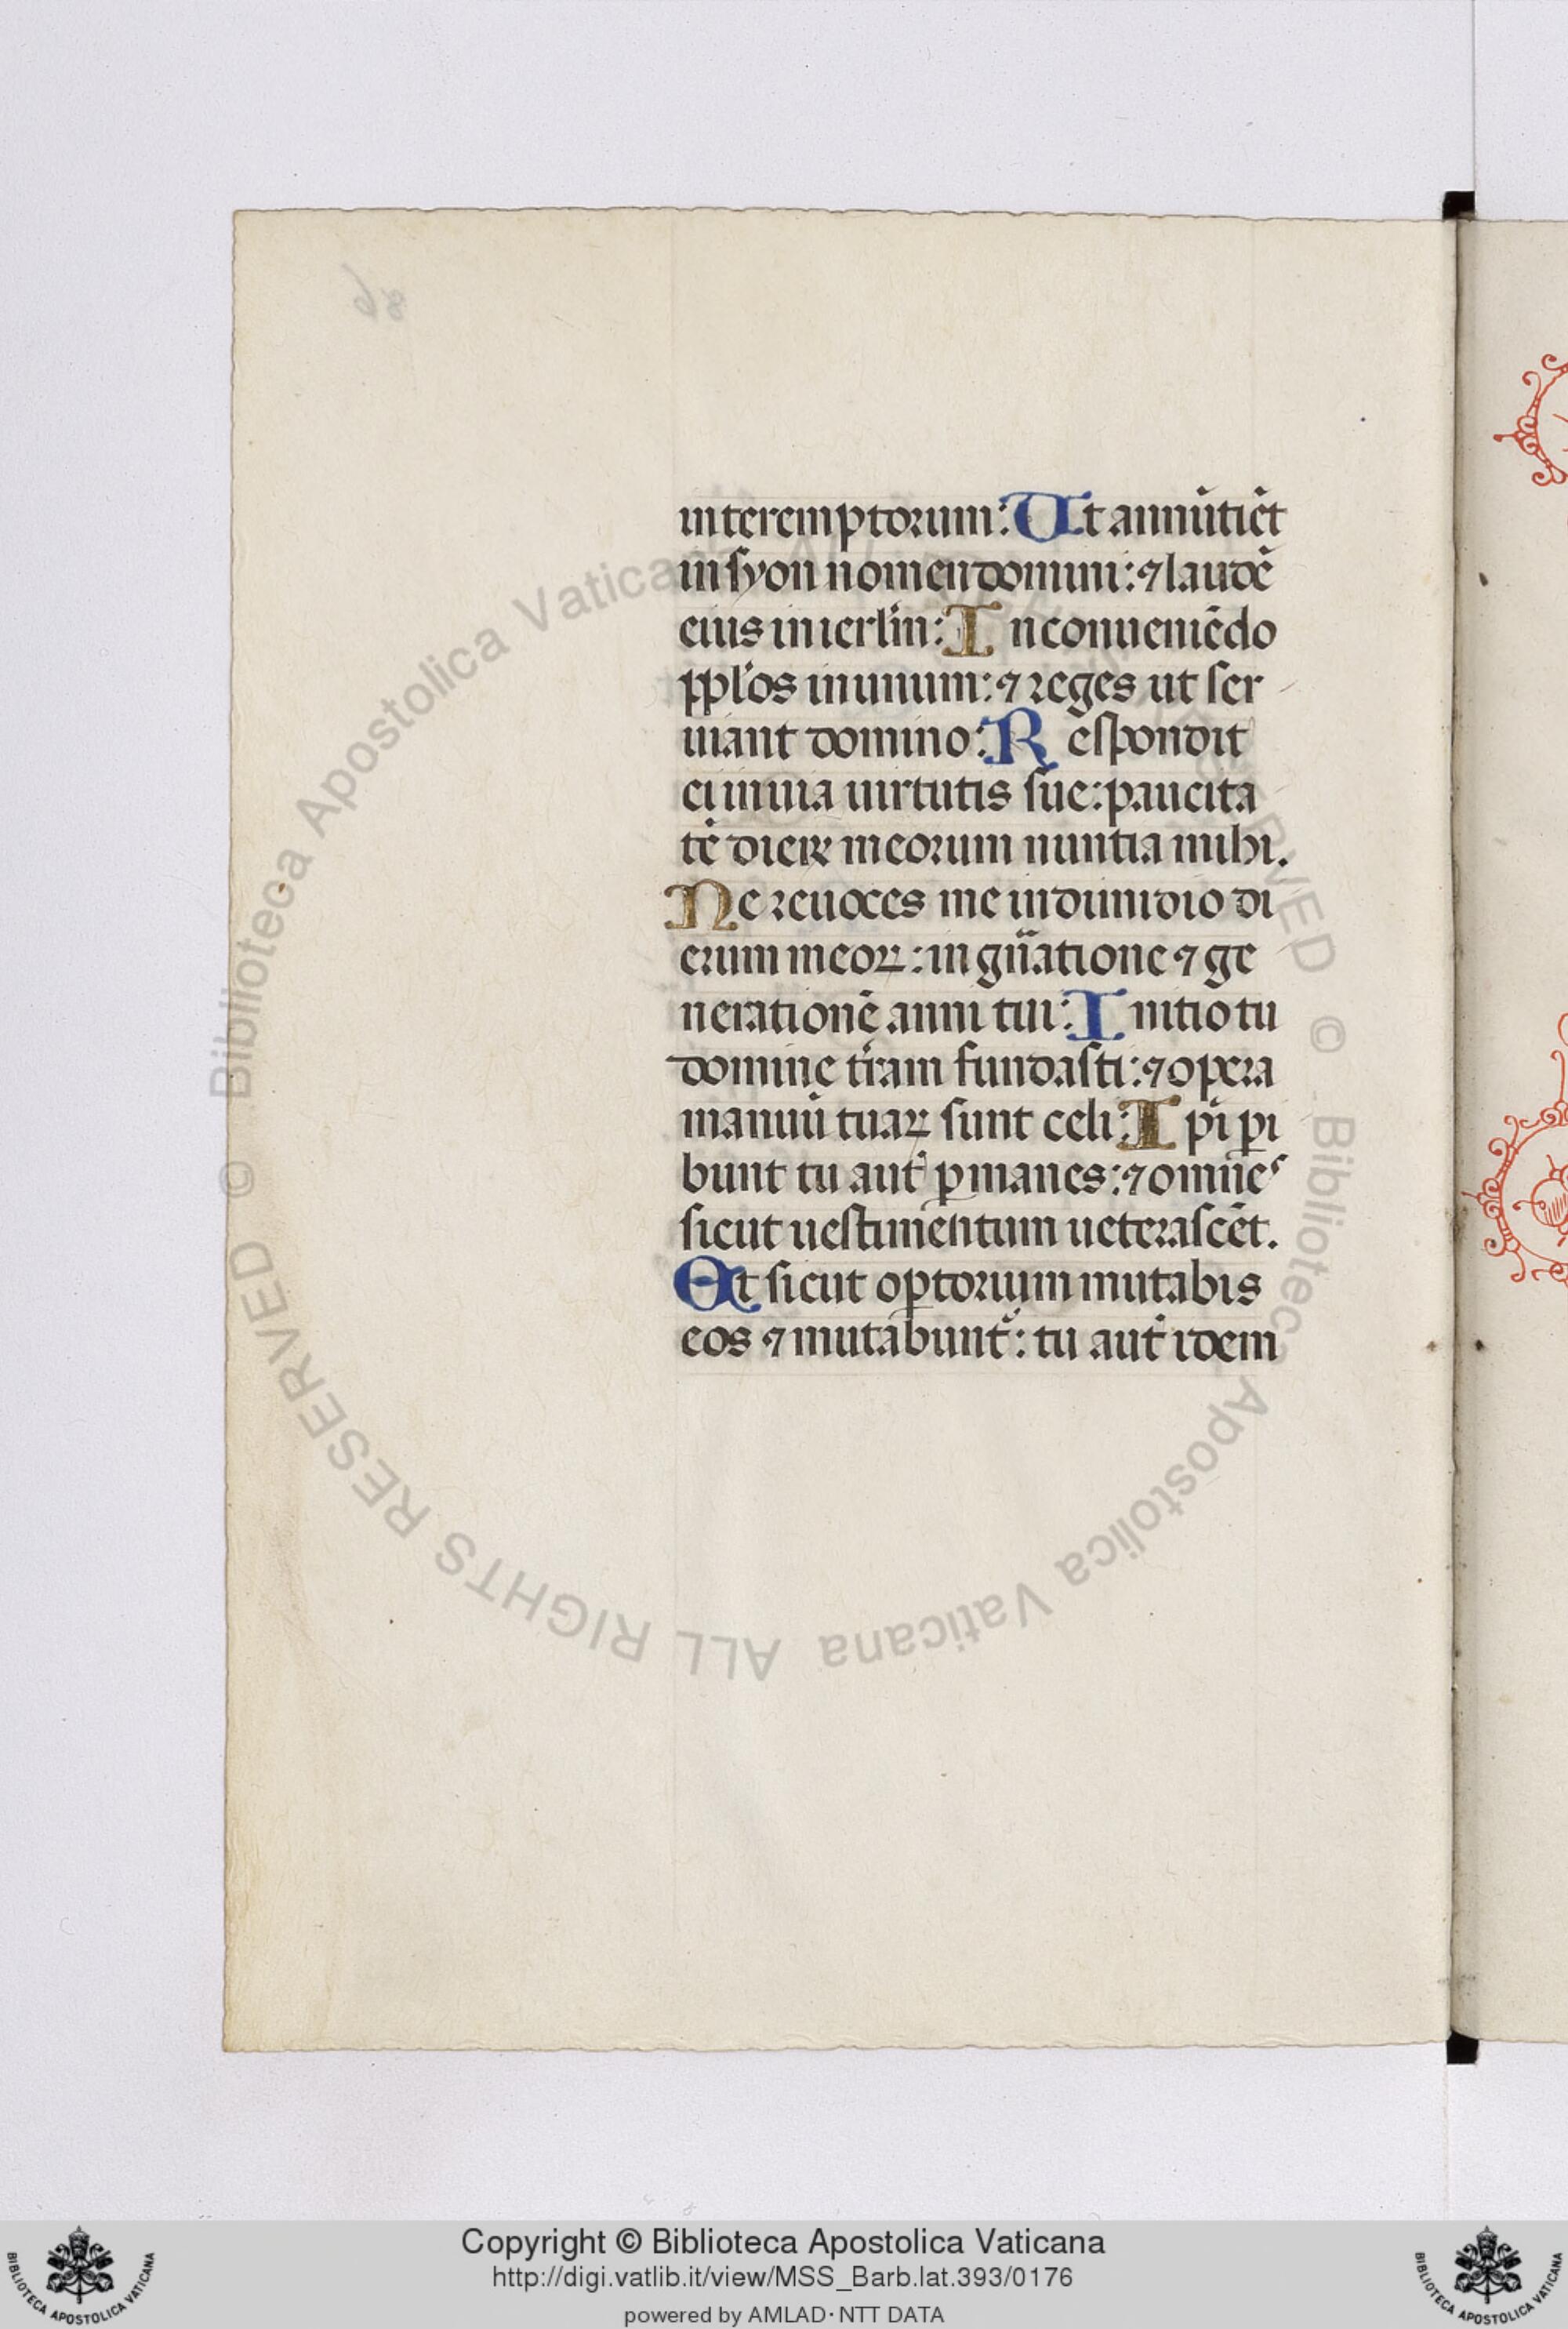 interemptorum: Ut annūtiēt
in syon nomen domini: ⁊ laudē
eius in ierl̄m: In conueniēdo
ppl̄os in unum: ⁊ reges ut ser
uiant domino: Respondit
ei in uia uirtutis sue: paucita
tē dieꝝ meorum nuntia mihi.
Ne reuoces me in dimidio di
erum meoꝝ: in gn̄atione ⁊ ge
nerationē anni tui: Initio tu
domine t̄ram fundasti: ⁊ opera
manuū tuaꝝ sunt celi: Ip̄i ꝑi
bunt tu aut̄ ꝑmanes: ⁊ omnes
sicut uestimentum ueterascēt.
Et sicut oꝑtorium mutabis
eos ⁊ mutabunt᷑: tu aut̄ idem
Biblioteca Apostolica Vaticana ALL RIGHTS RESERVED ©
Copyright © Biblioteca Apostolica Vaticana
http://digi.vatlib.it/view/MSS_Barb.lat.393/0176
powered by AMLAD · NTT DATA
BIBLIOTECA APOSTOLICA VATICANA
BIBLIOTECA APOSTOLICA VATICANA